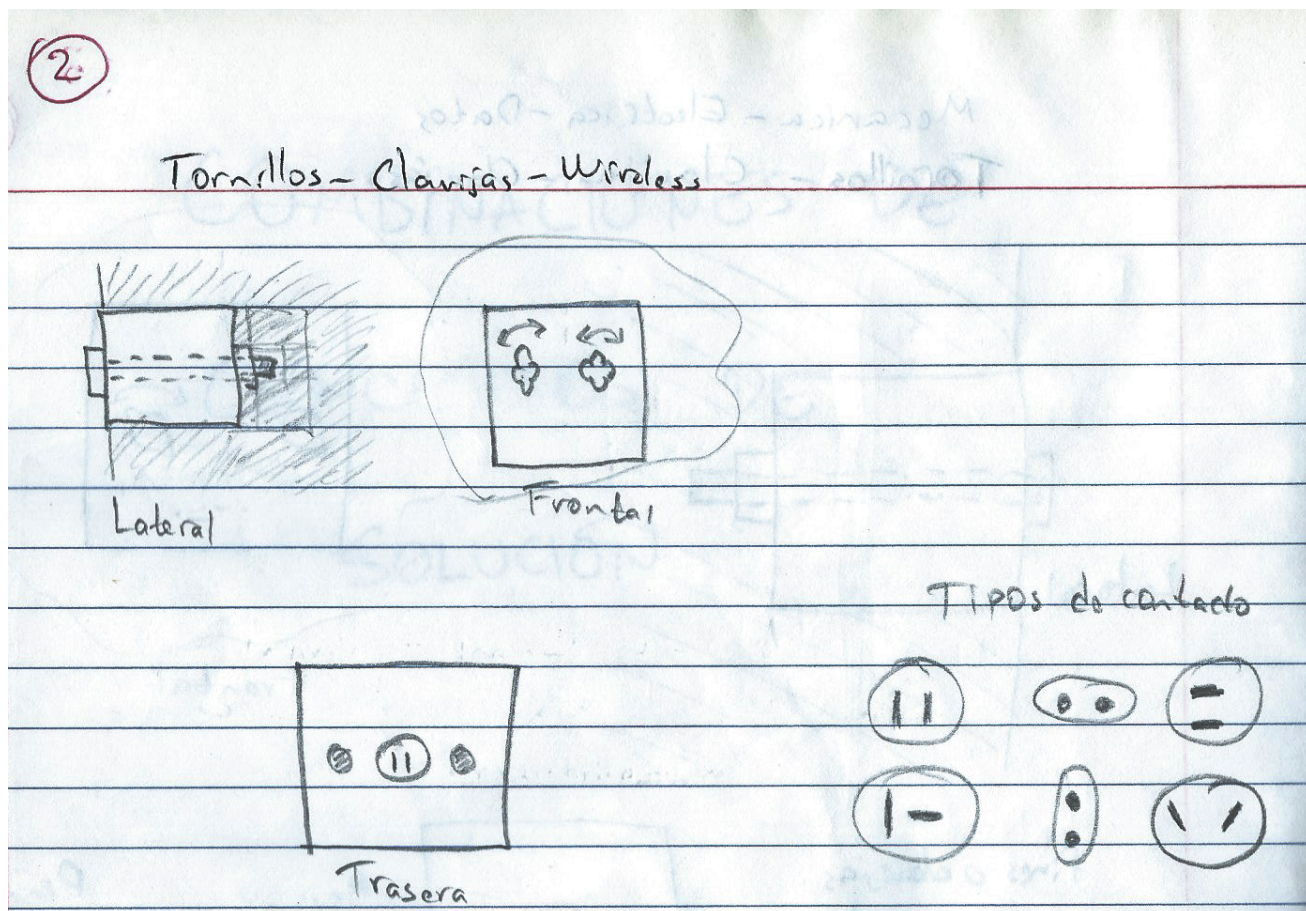 2
Tornillos - Clavijas - Wireless
Lateral
Frontal
Tipos de contacto
Trasera